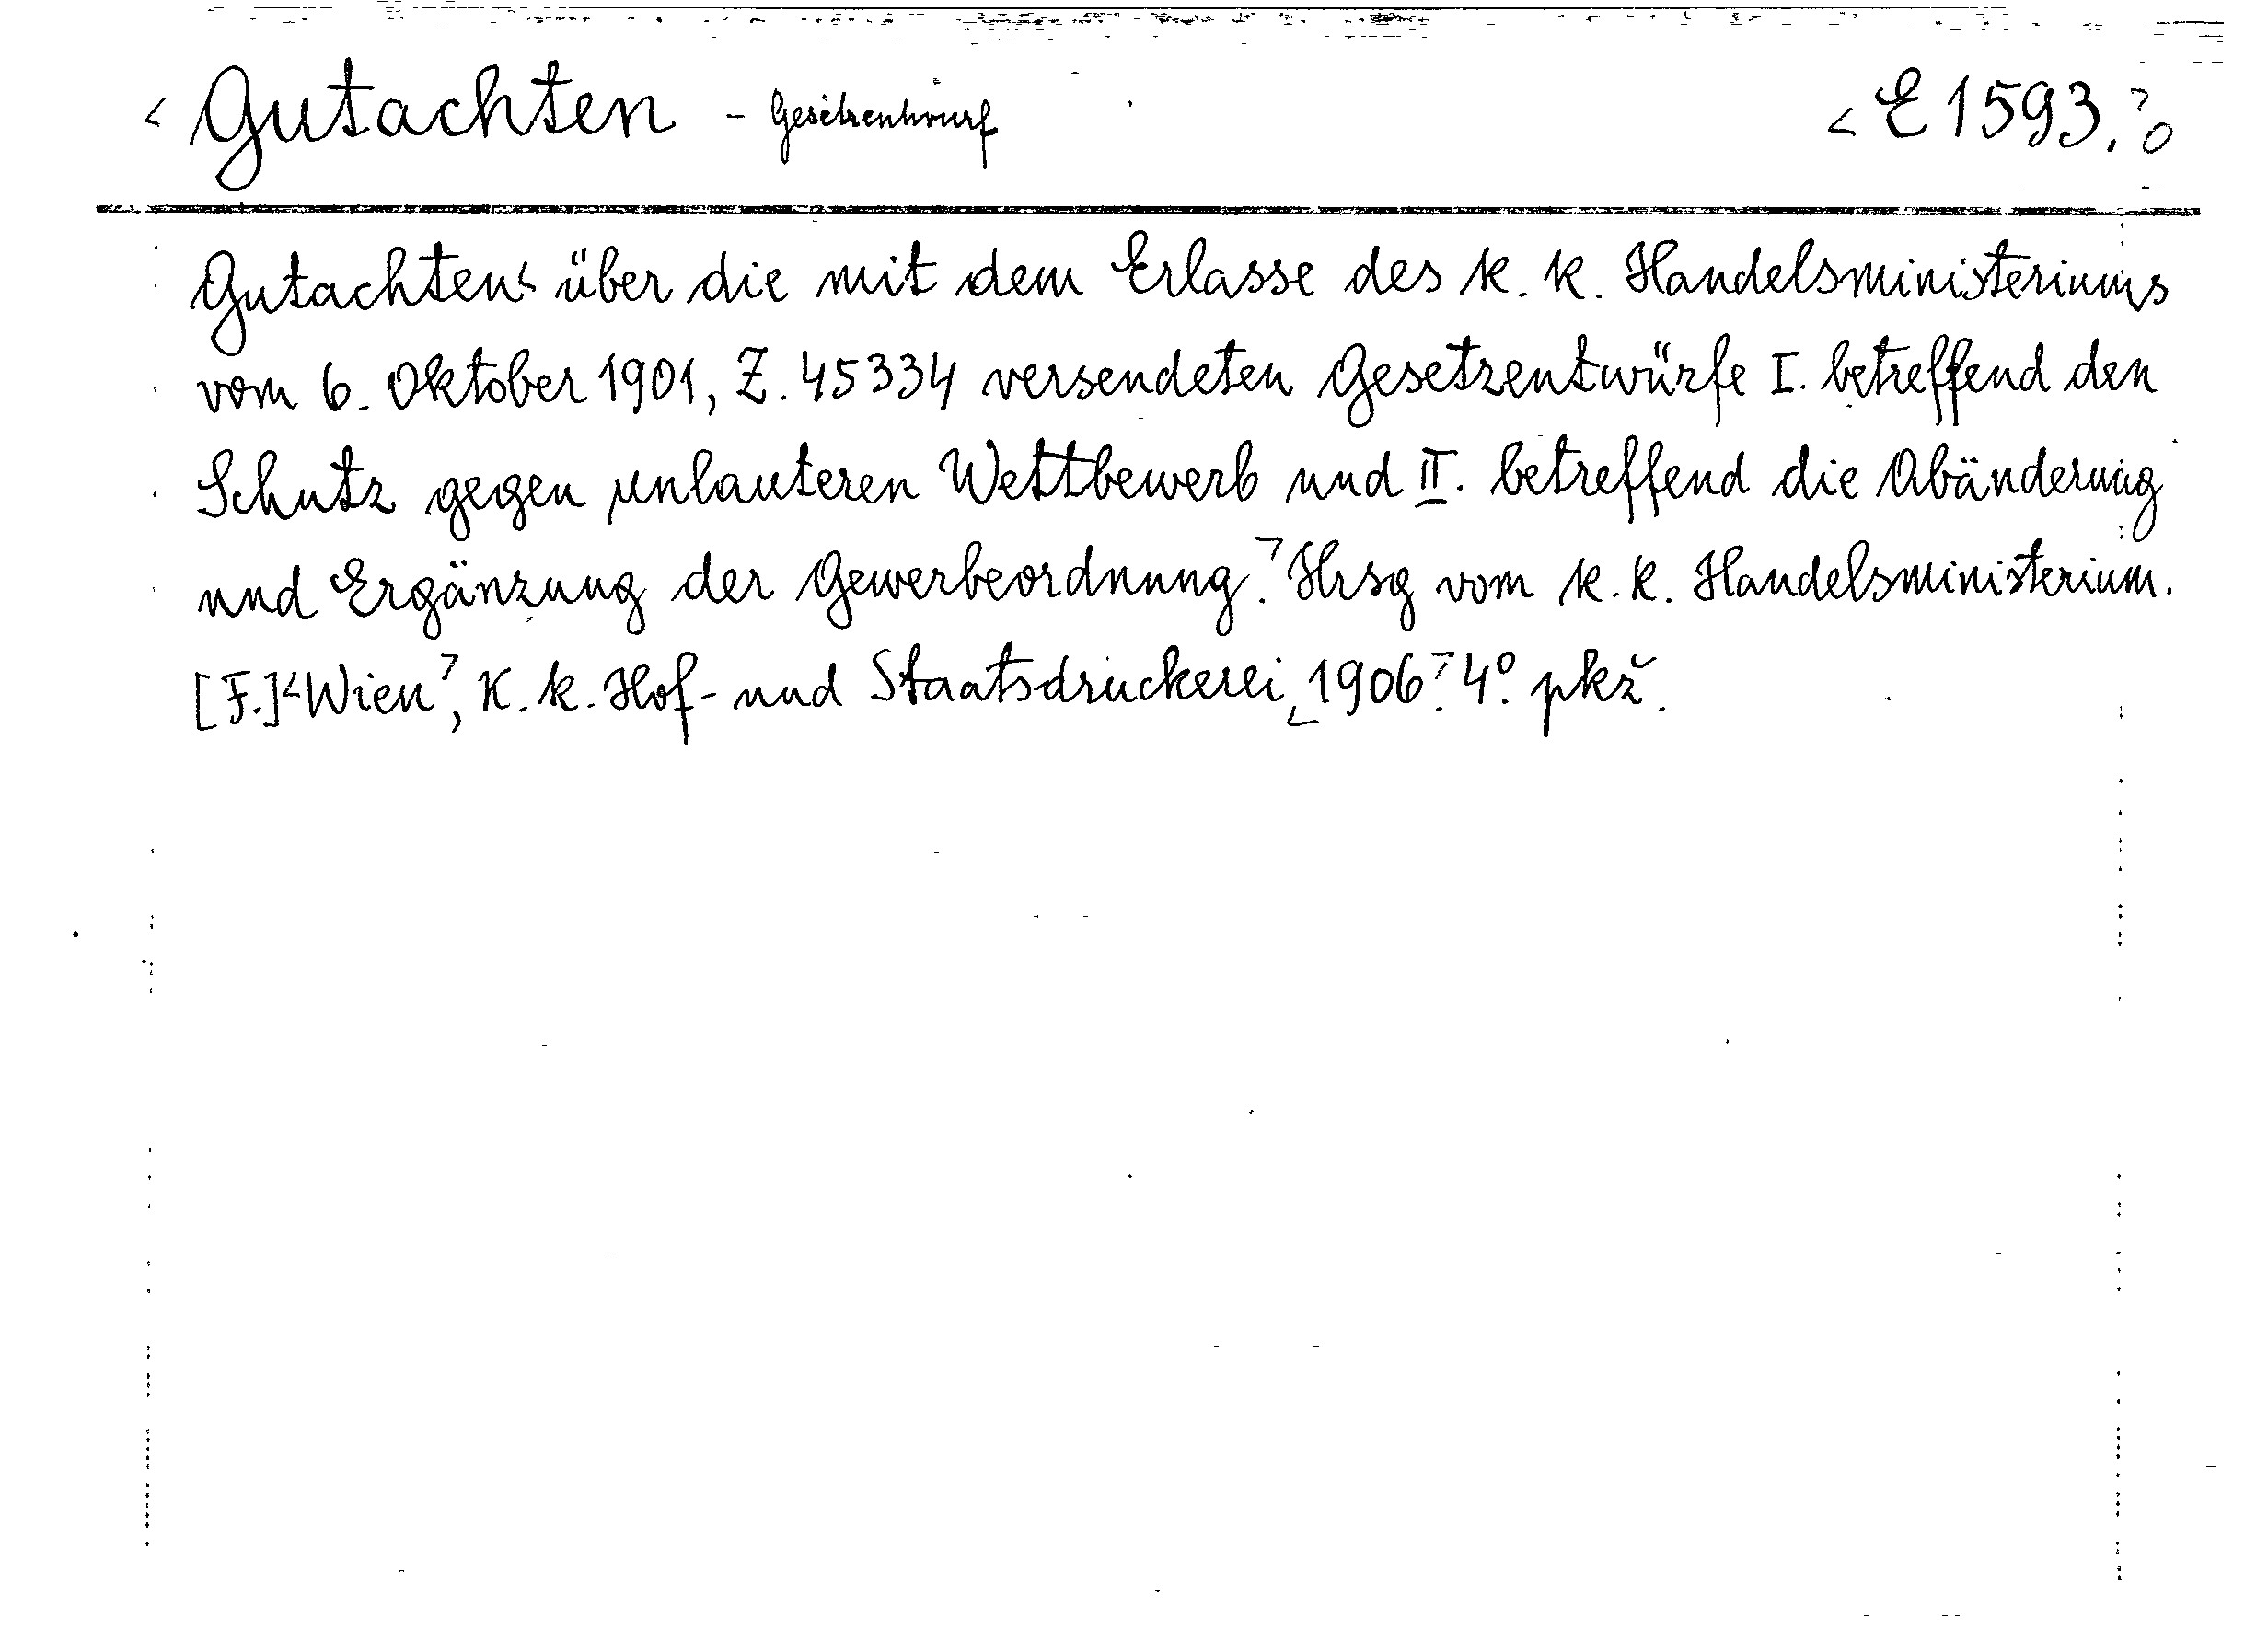 < Gutachten - Gesetzentwurf < E 1593.> o
Gutachten < über die mit dem Erlasse des k. k. Handelsministeriums
vom 6. Oktober 1901, Z. 45334 versendeten Gesetzentwürfe I. betreffend den
Schutz gegen unlauteren Wettbewerb und II. betreffend die Abänderung
und Ergänzung der Gewerbeordnung.> Hrsg vom k. k. Handelsministerium.
[F.] <Wien>, K. k. Hof- und Staatsdruckerei < 1906.> 4°. pkž.